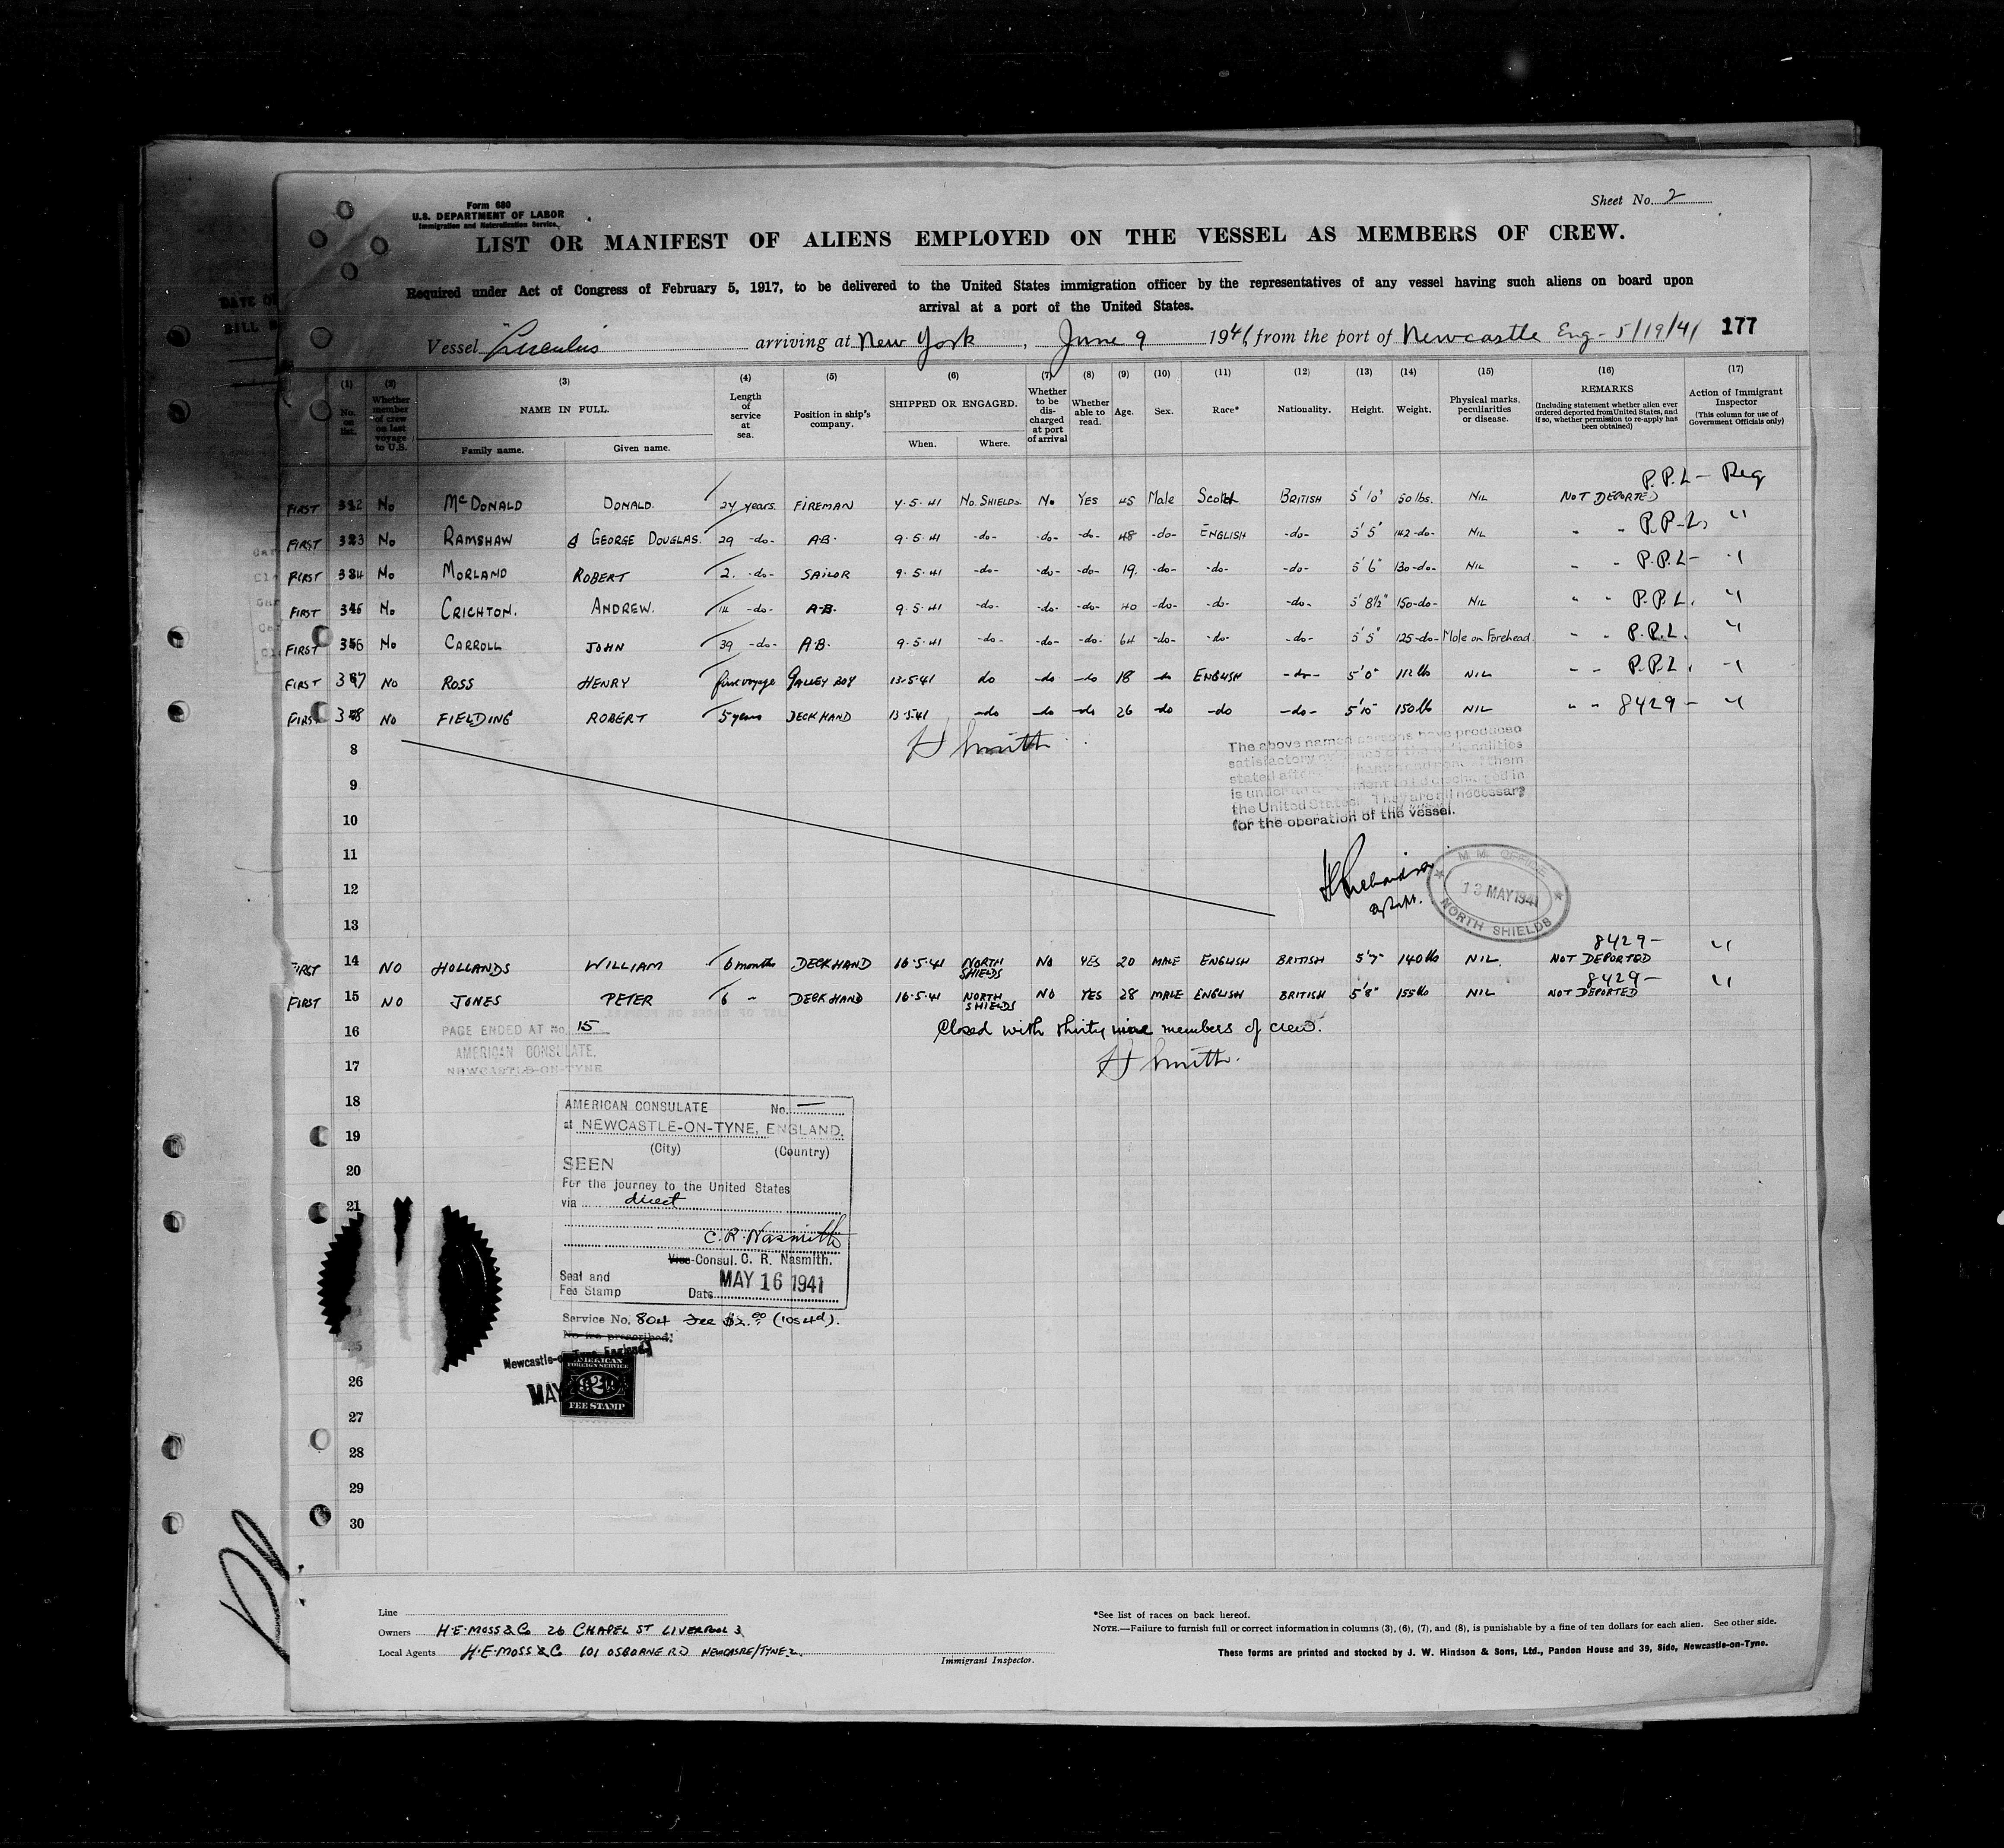 Form 680
U.S. DEPARTMENT OF LABOR
Immigration and Naturalization Service.
Sheet No. 2
LIST OR MANIFEST OF ALIENS EMPLOYED ON THE VESSEL AS MEMBERS OF CREW.
Required under Act of Congress of February 5, 1917, to be delivered to the United States immigration officer by the representatives of any vessel having such aliens on board upon
arrival at a port of the United States.
Vessel Luculus arriving at New York, June 9 1941, from the port of Newcastle Eng - 5/19/41 177
(1) No. on list.
(2) Whether member of crew on last voyage to U.S.
(3) NAME IN FULL. Family name. Given name.
(4) Length of service at sea.
(5) Position in ship's company.
(6) SHIPPED OR ENGAGED. When. Where.
(7) Whether to be discharged at port of arrival
(8) Whether able to read.
(9) Age.
(10) Sex.
(11) Race*
(12) Nationality.
(13) Height.
(14) Weight.
(15) Physical marks, peculiarities or disease.
(16) REMARKS (Including statement whether alien ever ordered deported from United States, and if so, whether permission to re-apply has been obtained)
(17) Action of Immigrant Inspector (This column for use of Government Officials only)
P.P.L - Reg
FIRST No McDONALD DONALD. 24 years. FIREMAN 9.5.41 No. SHIELDS No YES 45 Male Scotch BRITISH 5' 10" 150 lbs. NIL NOT DEPORTED
FIRST No RAMSHAW GEORGE DOUGLAS. 29 -do- A.B. 9.5.41 -do- -do- -do- 48 -do- ENGLISH -do- 5' 5" 142 -do- NIL " " P.P.L, "
FIRST No MORLAND ROBERT 2. -do- SAILOR 9.5.41 -do- -do- -do- 19. -do- -do- -do- 5' 6" 130 -do- NIL " " P.P.L - "
FIRST No CRICHTON. ANDREW. 14 -do- A.B. 9.5.41 -do- -do- -do- 40 -do- -do- -do- 5' 8½" 150 -do- NIL " " P.P.L. "
FIRST No CARROLL JOHN 39 -do- A.B. 9.5.41 -do- -do- -do- 64 -do- -do- -do- 5' 5" 125 -do- Mole on Forehead. " " P.P.L. "
FIRST NO ROSS HENRY first voyage GALLEY BOY 13.5.41 do -do -do 18 -do ENGLISH -do- 5'0" 112 lb NIL " " P.P.L. "
FIRST NO FIELDING ROBERT 5 years DECK HAND 13.5.41 -do -do -do 26 -do -do -do- 5'10" 150 lb NIL " " 8429 - "
8
H Smith
The above named persons have produced
satisfactory evidence of the nationalities
stated after
is under an agreement to be discharged in
the United States. They are all necessary
for the operation of the vessel.
9
10
11
12
M.M. OFFICE
13 MAY 1941
NORTH SHIELDS
13
8429 -
FIRST 14 NO HOLLANDS WILLIAM 6 months DECK HAND 16.5.41 NORTH SHIELDS NO YES 20 MALE ENGLISH BRITISH 5'7" 140 lb NIL NOT DEPORTED "
8429 -
FIRST 15 NO JONES PETER 6 " DECK HAND 16.5.41 NORTH SHIELDS NO YES 28 MALE ENGLISH BRITISH 5'8" 155 lb NIL NOT DEPORTED "
16 PAGE ENDED AT No. 15
Closed with thirty nine members of crew.
AMERICAN CONSULATE.
17 NEWCASTLE-ON-TYNE
H Smith.
18
AMERICAN CONSULATE No. —
19
at NEWCASTLE-ON-TYNE, ENGLAND.
(City) (Country)
20
SEEN
For the journey to the United States
21
via direct
C. R. Nasmith
Vice-Consul. C. R. Nasmith.
Seal and
Fee Stamp
Date MAY 16 1941
Service No. 804 Fee $2.00 (10s 4d).
No fee prescribed.
25
Newcastle-on-Tyne, England
26
MAY
AMERICAN
FOREIGN SERVICE
2
FEE STAMP
27
28
29
30
Line
Owners H.E. MOSS & Co 26 CHAPEL ST LIVERPOOL 3
Local Agents H.E. MOSS & Co 101 OSBORNE RD NEWCASTLE/TYNE 2.
Immigrant Inspector.
*See list of races on back hereof.
NOTE.—Failure to furnish full or correct information in columns (3), (6), (7), and (8), is punishable by a fine of ten dollars for each alien. See other side.
These forms are printed and stocked by J. W. Hindson & Sons, Ltd., Pandon House and 39, Side, Newcastle-on-Tyne.